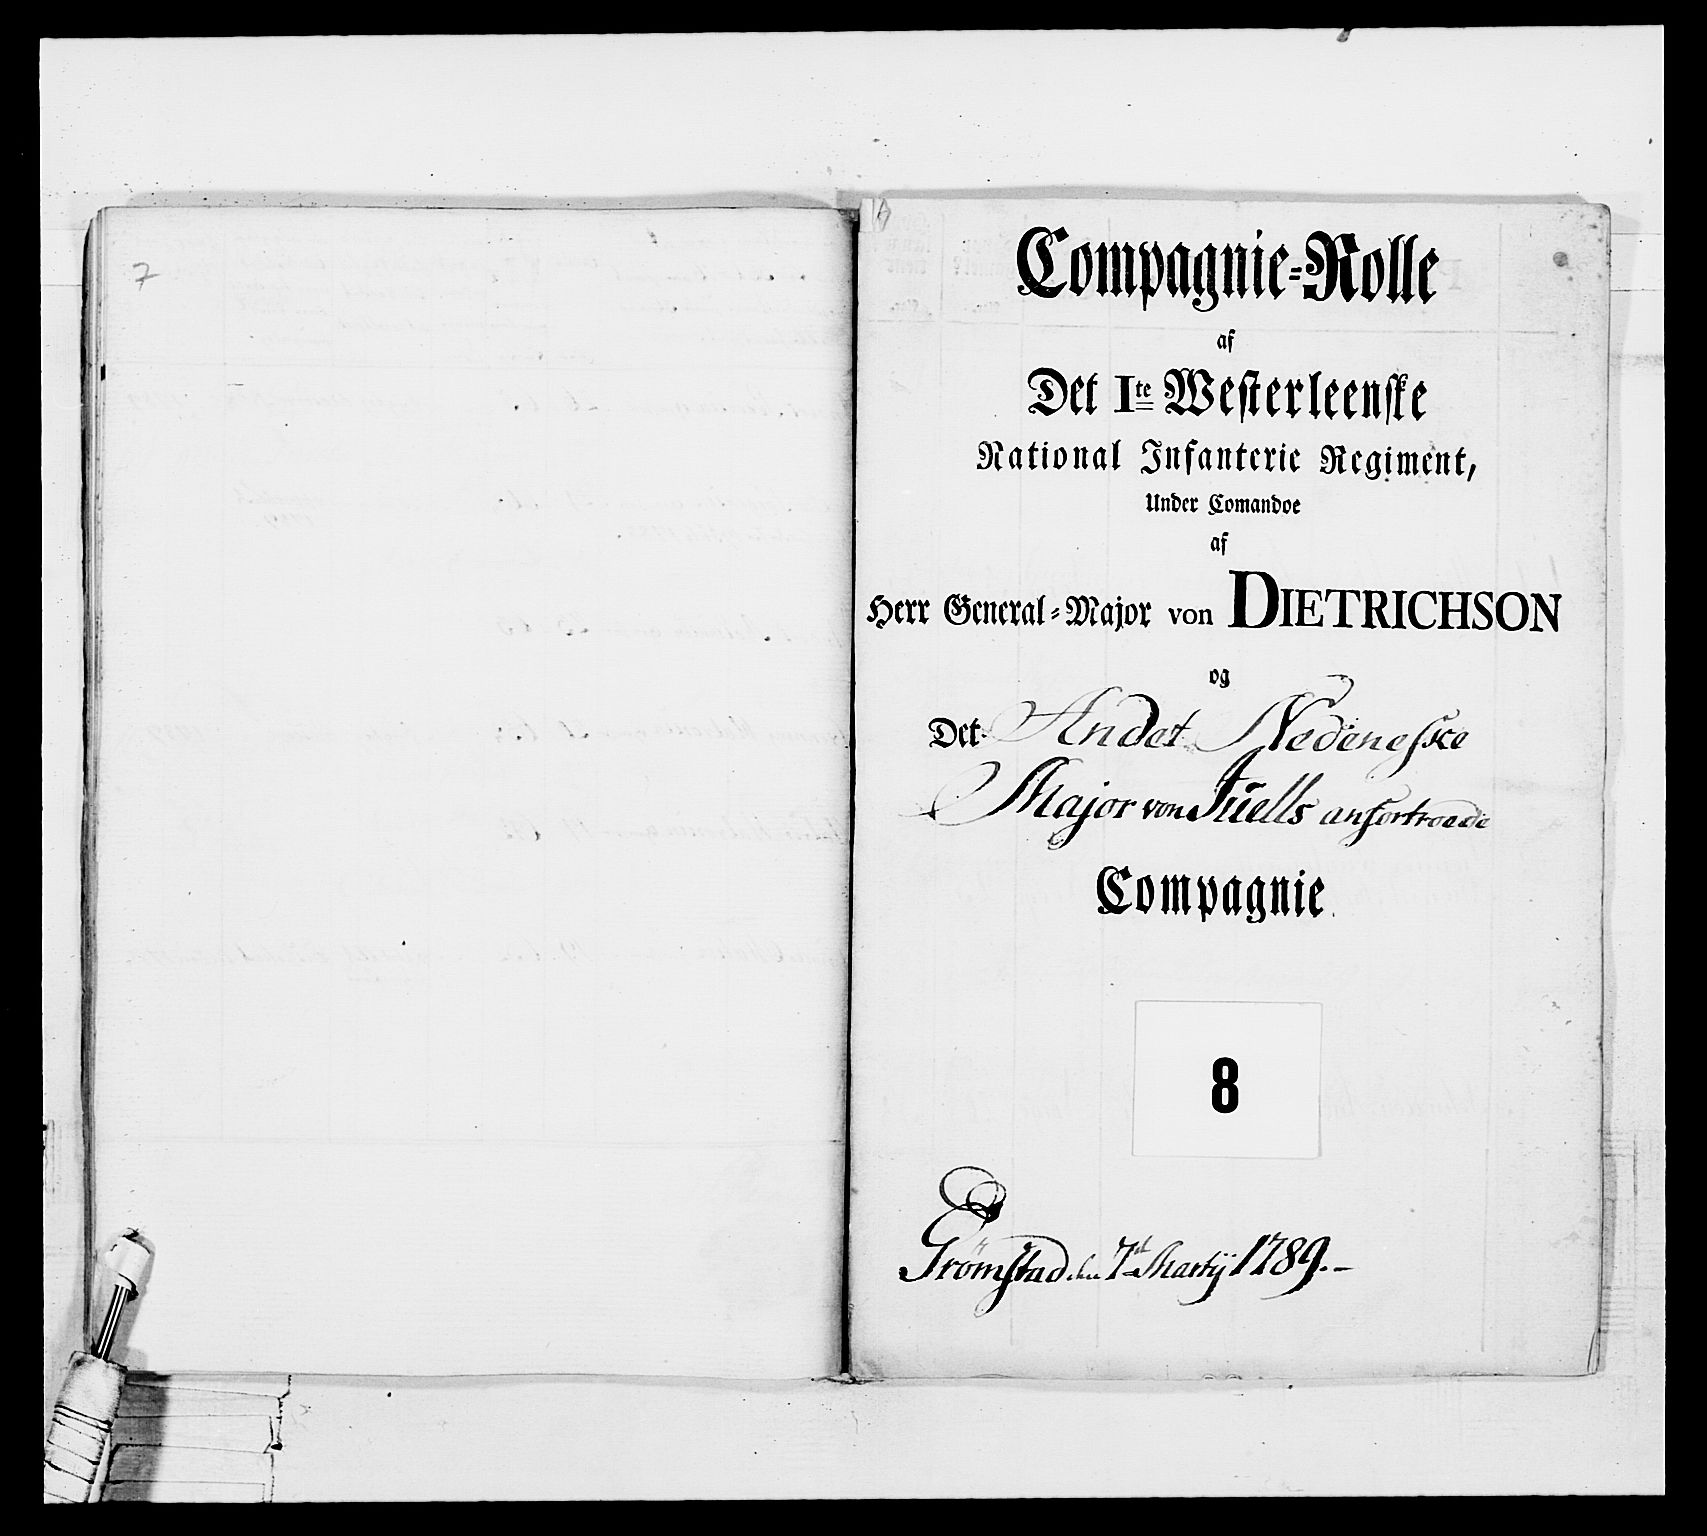 7
Compagnie-Rolle
af
Det 1te Westerleenske
National Infanterie Regiment,
Under Comandoe
af
Herr General-Major von DIETRICHSON
og
Det Andet Nedenesske
Major von Juells anfortroede
Compagnie
8
Grømstad den 7de Martij 1789.-